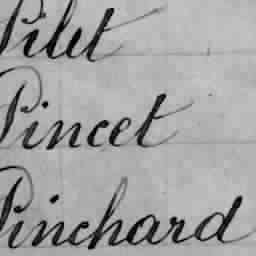 Pilet
Pincet
Pinchard